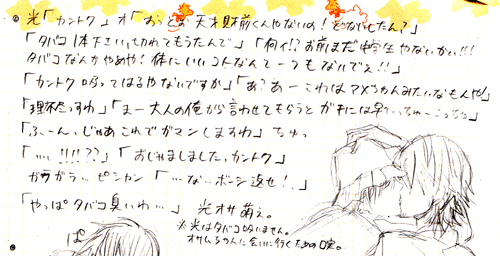 光「カントク」オ「おっどぉ 天才財前くんやないの！どないしたん？」
「タバコ1本下さい、切れてもうたんで」「何ィ!? お前まだ中学生やないかい!!!
タバコなんかやめや！体にいいコトなんて一つもないでぇ!!」
「カントク吸ってはるやないですか」「あ？あーこれはアメちゃんみたいなもんや！」
「理不尽っすわ」「まー大人の俺から言わせてもらうと ガキには早い、ちゅーこっちゃ」
「ふーん、じゃあこれでガマンしますわ」ちゅっ
「…、!!!??」「おじゃましました、カントク」
ガラガラ…ピシャン「…な…ボーシ返せ！」
「やっぱタバコ臭いわ…」光オサ萌え。
※光はタバコ吸いません。
オサムちゃんに会いに行くための口実。
ぱ